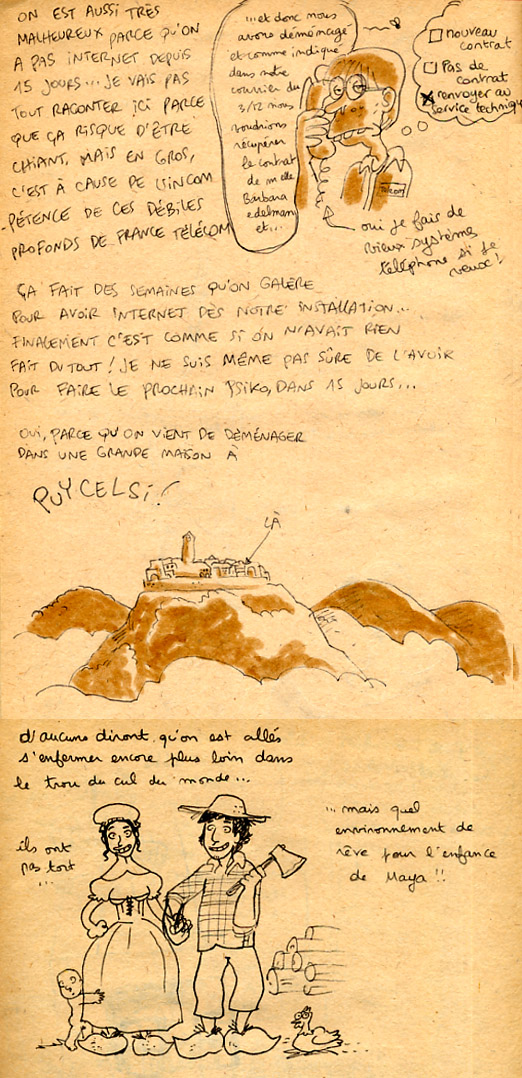 ON EST AUSSI TRÈS
MALHEUREUX PARCE QU'ON
A PAS INTERNET DEPUIS
15 JOURS... JE VAIS PAS
TOUT RACONTER ICI PARCE
QUE ÇA RISQUE D'ÊTRE
CHIANT, MAIS EN GROS,
C'EST À CAUSE DE L'INCOM
-PÉTENCE DE CES DÉBILES
PROFONDS DE FRANCE TÉLÉCOM
...et donc nous
avons déménagé
et comme indiqué
dans notre
courrier du
3/12 nous
voudrions
récupérer
le contrat
de melle
Barbara
edelman
et...
nouveau
contrat
Pas de
contrat
renvoyer au
service technique
Telecom
oui je fais de
vieux systèmes
téléphone si je
veux!
ÇA FAIT DES SEMAINES QU'ON GALÈRE
POUR AVOIR INTERNET DÈS NOTRE INSTALLATION...
FINALEMENT C'EST COMME SI ON N'AVAIT RIEN
FAIT DU TOUT! JE NE SUIS MÊME PAS SÛRE DE L'AVOIR
POUR FAIRE LE PROCHAIN PSIKO, DANS 15 JOURS...
OUI, PARCE QU'ON VIENT DE DÉMÉNAGER
DANS UNE GRANDE MAISON À
PUYCELSI!
LÀ
d'aucuns diront qu'on est allés
s'enfermer encore plus loin dans
le trou du cul du monde...
ils ont
pas tort
...
... mais quel
environnement de
rêve pour l'enfance
de Maya!!